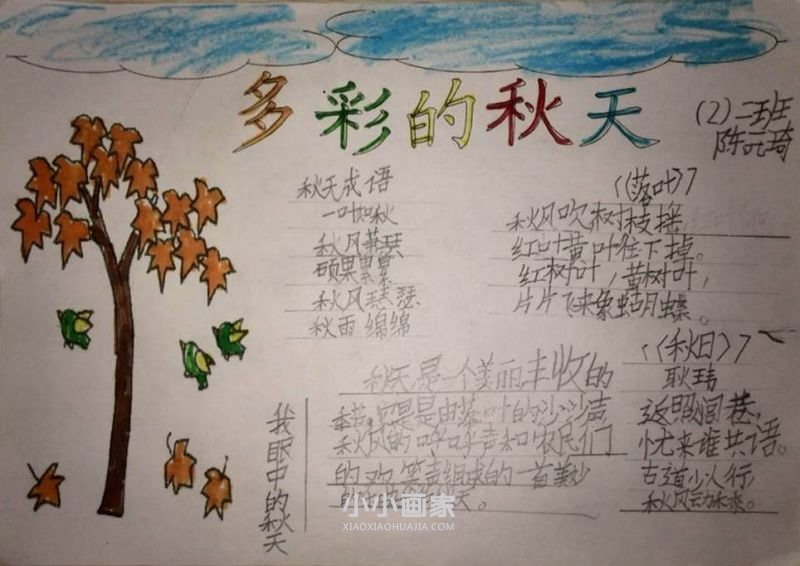 多彩的秋天
(2)二班
陈元琦
秋天成语
一叶知秋
秋风萧瑟
硕果累累
秋风瑟瑟
秋雨绵绵
《落叶》
秋风吹树枝摇
红叶黄叶往下掉。
红树叶，黄树叶，
片片飞来象蝴蝶。
我眼中的秋天
秋天是一个美丽丰收的
季节，是由落叶的沙沙声
秋风的呼呼声和农民们
的欢笑声组成的一首美妙
天。
《秋日》
耿玮
返照闾巷，
忧来谁共语。
古道少人行，
秋风动禾黍。
小小画家
XIAOXIAOHUAJIA.COM